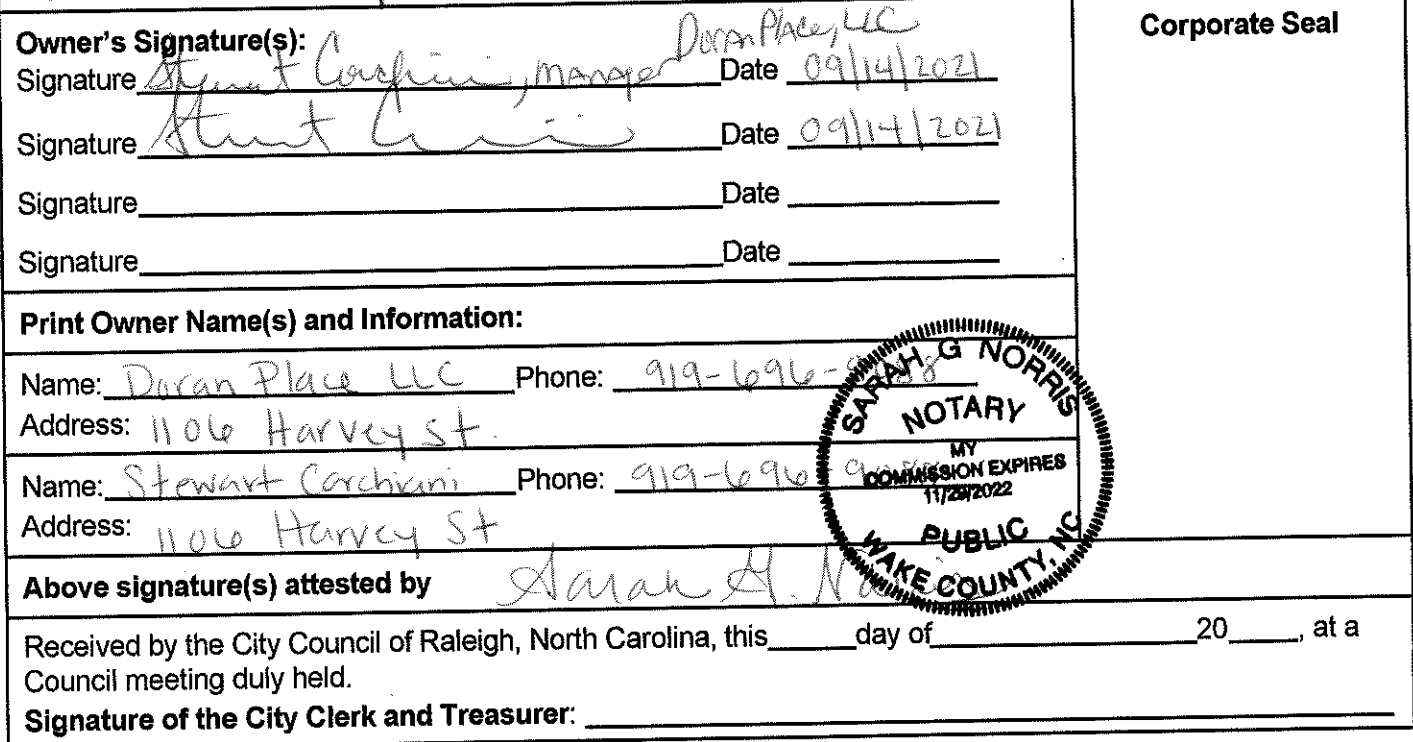 Owner's Signature(s):
Corporate Seal
Doran Place, LLC
Signature Stewart Corchiani, manager Date 09/14/2021
Signature Date 09/14/2021
Signature Date
Signature Date
Print Owner Name(s) and Information:
Name: Doran Place LLC Phone: 919-696-
Address: 1106 Harvey St.
Name: Stewart Corchiani Phone: 919-696-
Address: 1106 Harvey St
SARAH G NORRIS
NOTARY
MY
COMMISSION EXPIRES
11/29/2022
PUBLIC
WAKE COUNTY, NC
Above signature(s) attested by Sarah G. Norris
Received by the City Council of Raleigh, North Carolina, this day of 20 , at a
Council meeting duly held.
Signature of the City Clerk and Treasurer: